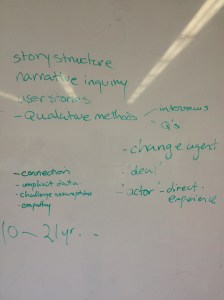 story structure
narrative inquiry
user stories
- Qualitative methods
interviews
Q's
- change agent
- 'deal'
- 'actor' - direct experience
- connection
- implicit data
- challenge assumptions
- empathy
10 - 21 yr.